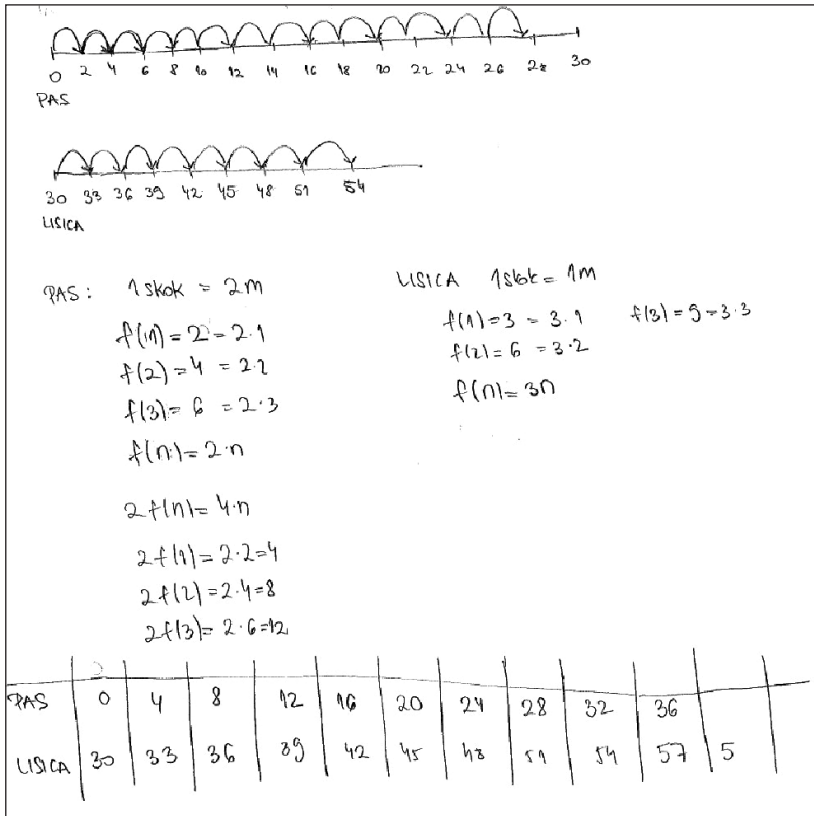 0 2 4 6 8 10 12 14 16 18 20 22 24 26 28 30
PAS
30 33 36 39 42 45 48 51 54
LISICA
PAS: 1 skok = 2m
f(1) = 2 = 2·1
f(2) = 4 = 2·2
f(3) = 6 = 2·3
f(n) = 2·n
2f(n) = 4·n
2f(1) = 2·2=4
2f(2) = 2·4=8
2f(3) = 2·6=12
LISICA 1skok = 1m
f(1)=3 = 3·1 f(3) = 9 = 3·3
f(2)=6 = 3·2
f(n)= 3n
PAS 0 4 8 12 16 20 24 28 32 36
LISICA 30 33 36 39 42 45 48 51 54 57 5